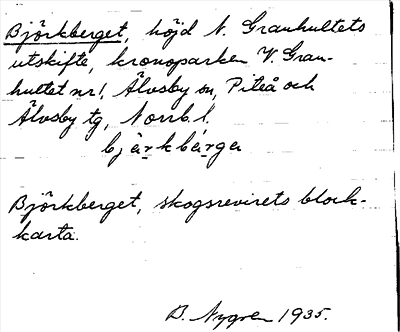 Björkberget, höjd N. Granhultets
utskifte, kronoparken V. Gran-
hultet nr 1, Älvsby sn, Piteå och
Älvsby tg, Norrb. l.
bjärkbärga
Björkberget, skogsrevirets block-
karta.
B. Nygren 1935.